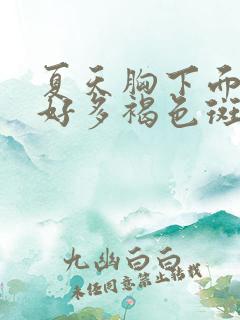 夏天胸下而
好多褐色斑
九幽白白
未任同意禁止转载